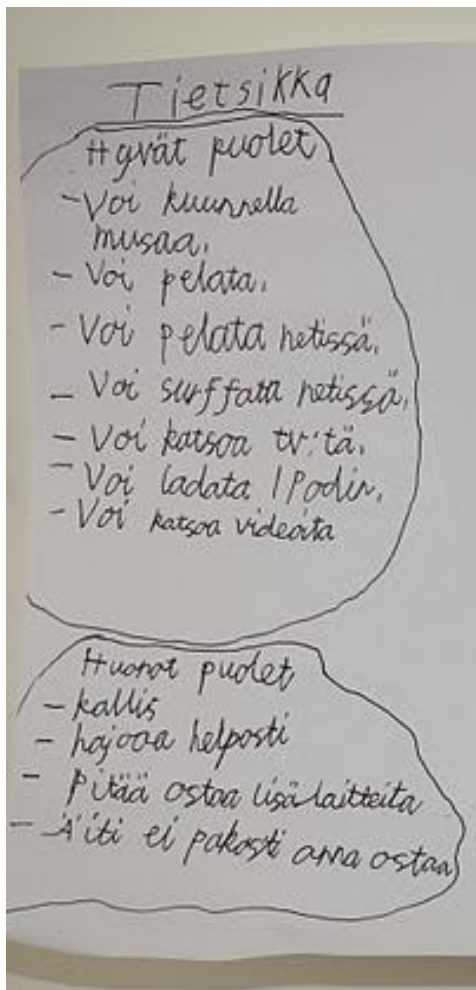 Tietsikka
Hyvät puolet
- Voi kuunnella
musaa.
- Voi pelata.
- Voi pelata netissä.
- Voi surffata netissä.
- Voi katsoa tv:tä.
- Voi ladata IPodin.
- Voi katsoa videoita
Huonot puolet
- kallis
- hajoaa helposti
- Pitää ostaa lisälaitteita
- Äiti ei pakosti anna ostaa